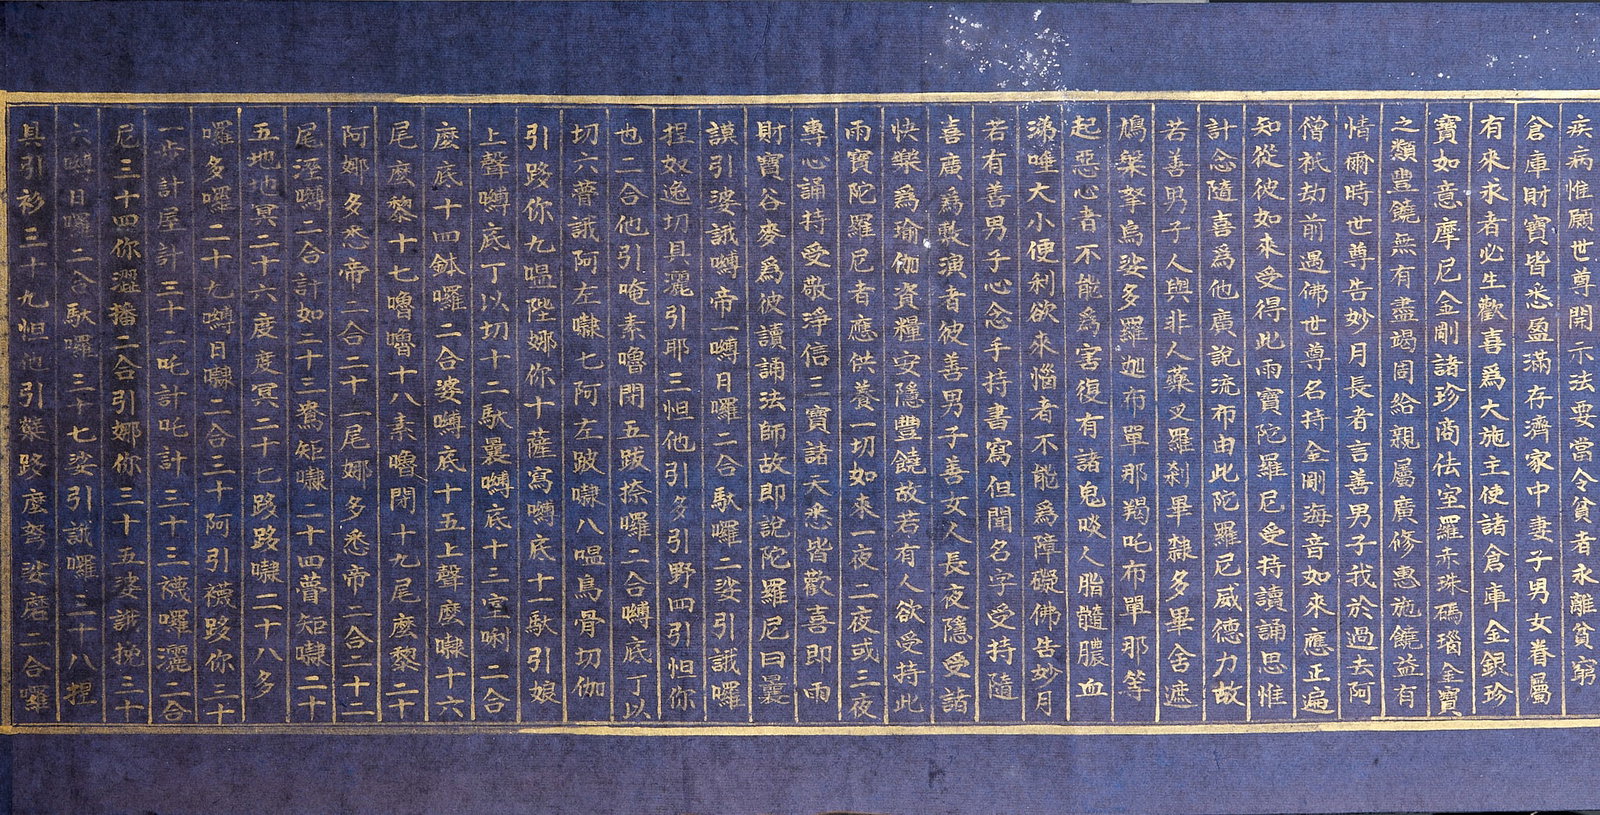 疾病惟願世尊開示法要當令貧者永離貧窮
倉庫財寶皆悉盈滿存濟家中妻子男女眷屬
有來求者必生歡喜爲大施主使諸倉庫金銀珍
寶如意摩尼金剛諸珍商佉室羅赤珠碼瑙金寶
之類豐饒無有盡竭周給親屬廣修惠施饒益有
情爾時世尊告妙月長者言善男子我於過去阿
僧祇劫前遇佛世尊名持金剛海音如來應正遍
知從彼如來受得此雨寶陀羅尼受持讀誦思惟
計念隨喜爲他廣說流布由此陀羅尼威德力故
若善男子人與非人藥叉羅刹畢隸多畢舍遮
鳩槃拏烏娑多羅迦布單那羯吒布單那等
起惡心者不能爲害復有諸鬼啖人脂髓膿血
涕唾大小便利欲來惱者不能爲障礙佛告妙月
若有善男子心念手持書寫但聞名字受持隨
喜廣爲敷演者彼善男子善女人長夜隱受諸
快樂爲瑜伽資糧安隱豐饒故若有人欲受持此
雨寶陀羅尼者應供養一切如來一夜二夜或三夜
專心誦持受敬淨信三寶諸天悉皆歡喜即雨
財寶谷麥爲彼讀誦法師故即說陀羅尼曰曩
謨引婆誐嚩帝一嚩日囉二合馱囉二娑引誐囉
捏奴逸切具灑引耶三怛他引多引野四引怛你
也二合他引唵素嚕閉五跋捺囉二合嚩底丁以
切六瞢誐阿左㘑七阿左跛㘑八嗢烏骨切伽
引跢你九嗢陛娜你十薩寫嚩底十一馱引娘
上聲嚩底丁以切十二馱曩嚩底十三室唎二合
麼底十四鉢囉二合婆嚩底十五上聲麼㘑十六
尾麼黎十七嚕嚕十八素嚕閉十九尾麼黎二十
阿娜多悉帝二合二十一尾娜多悉帝二合二十二
尾溼嚩二合計如二十三鴦矩㘑二十四瞢矩㘑二十
五地地冥二十六度度冥二十七跢跢㘑二十八多
囉多囉二十九嚩日㘑二合三十阿引襪跢你三十
一步計屋計三十二吒計吒計三十三襪囉灑二合
尼三十四你澀播二合引娜你三十五娑誐挽三十
六嚩日囉二合馱囉三十七娑引誐囉三十八捏
具引衫三十九怛他引蘗跢麼努娑磨二合囉